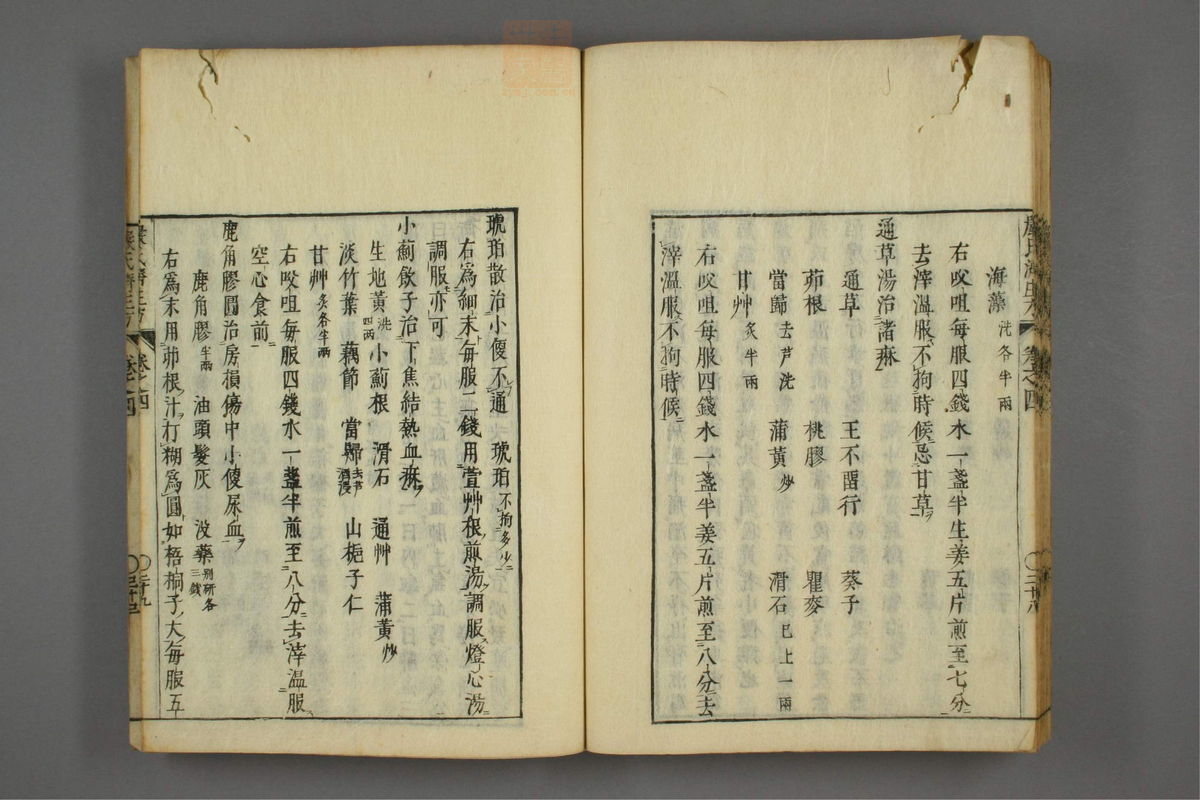 海藻洗各半兩
右㕮咀每服四錢水一盞半生姜五片煎至七分
去滓溫服不拘時候忌甘草
通草湯治諸痳
通草　王不畱行　葵子
茆根　桃膠　瞿麥
當歸去芦洗　蒲黃炒　滑石已上一兩
甘艸炙半兩
右㕮咀每服四錢水一盞半姜五片煎至八分去
滓溫服不拘時候
琥珀散治小便不通　琥珀不拘多少
右爲細末每服二錢用萱艸根煎湯調服燈心湯
調服亦可
小薊飲子治下焦結熱血痳
生地黃洗四兩　小薊根　滑石　通艸　蒲黃炒
淡竹葉　藕節　當歸去芦酒浸　山梔子仁
甘艸炙各半兩
右㕮咀每服四錢水一盞半煎至八分去滓溫服
空心食前
鹿角膠圓治房損傷中小便尿血
鹿角膠半兩　油頭髮灰　沒藥別研各三錢
右爲末用茆根汁打糊爲圓如梧桐子大每服五
嚴氏濟生方　卷之四